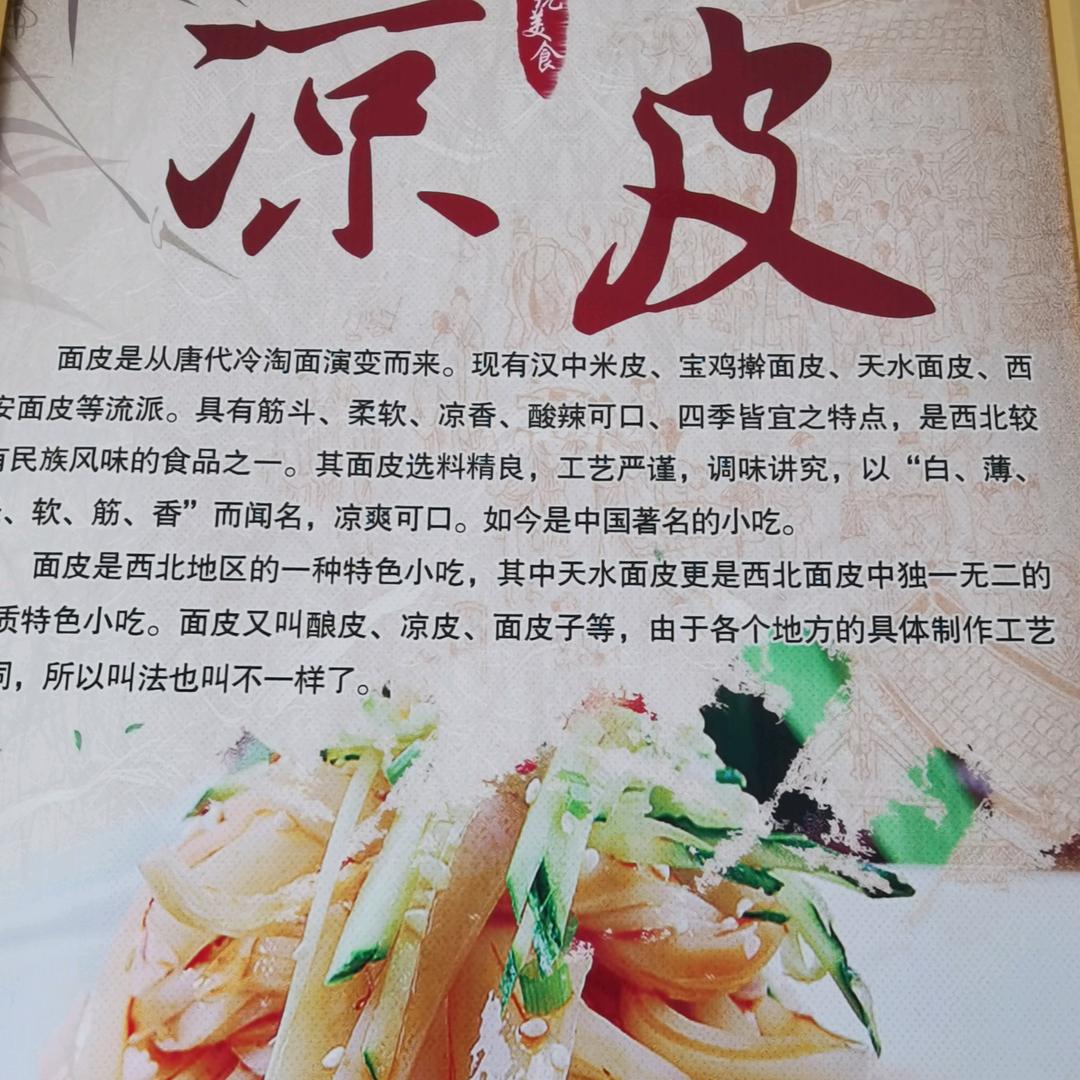 美食
凉皮
面皮是从唐代冷淘面演变而来。现有汉中米皮、宝鸡擀面皮、天水面皮、西
安面皮等流派。具有筋斗、柔软、凉香、酸辣可口、四季皆宜之特点，是西北较
有民族风味的食品之一。其面皮选料精良，工艺严谨，调味讲究，以“白、薄、
、软、筋、香”而闻名，凉爽可口。如今是中国著名的小吃。
面皮是西北地区的一种特色小吃，其中天水面皮更是西北面皮中独一无二的
质特色小吃。面皮又叫酿皮、凉皮、面皮子等，由于各个地方的具体制作工艺
同，所以叫法也叫不一样了。